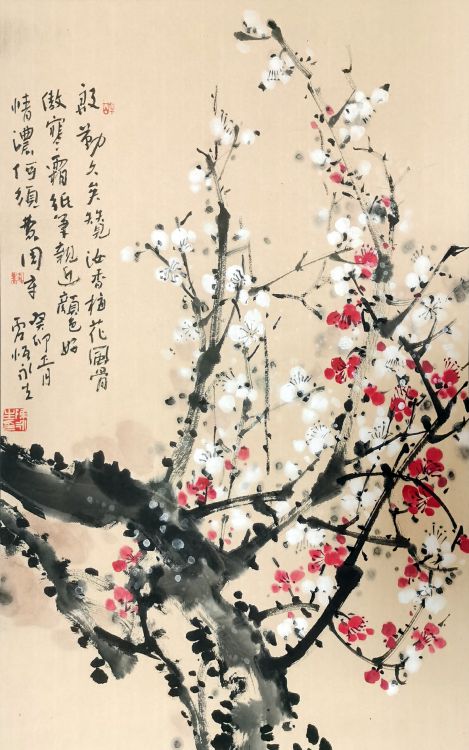 殷勤久矣覓汝香梅花風骨
傲寒霜紙筆親近顏色好
情濃何須費周章
癸卯 月
永生